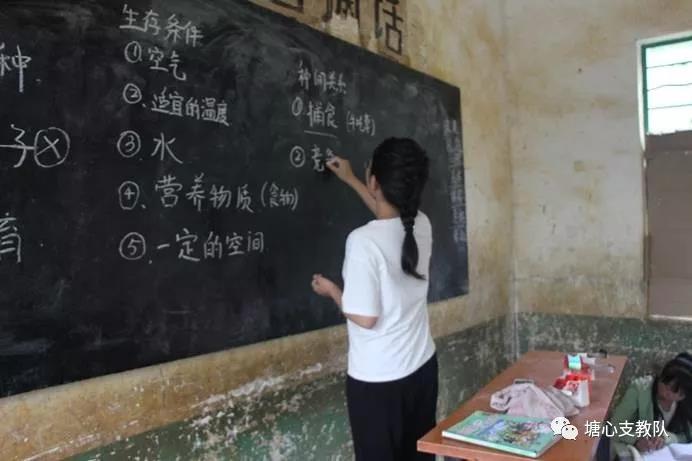 种
子
育
生存条件
①空气
②、适宜的温度
③水
④、营养物质(食物)
⑤、一定的空间
种间关系
①捕食
②竞争
话
塘心支教队